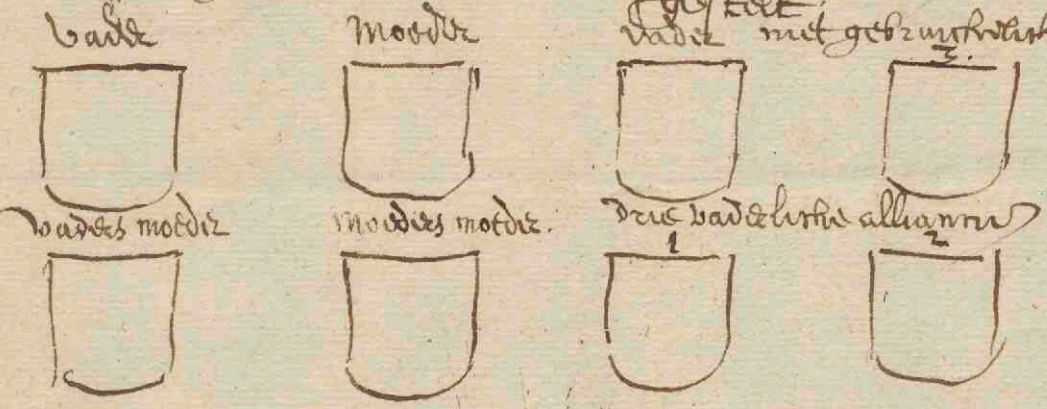 gestelt.
Vader Moeder vader met gebruickelick
3.
vaders moeder moeders moeder. drie vaderliche alliancien
1 2